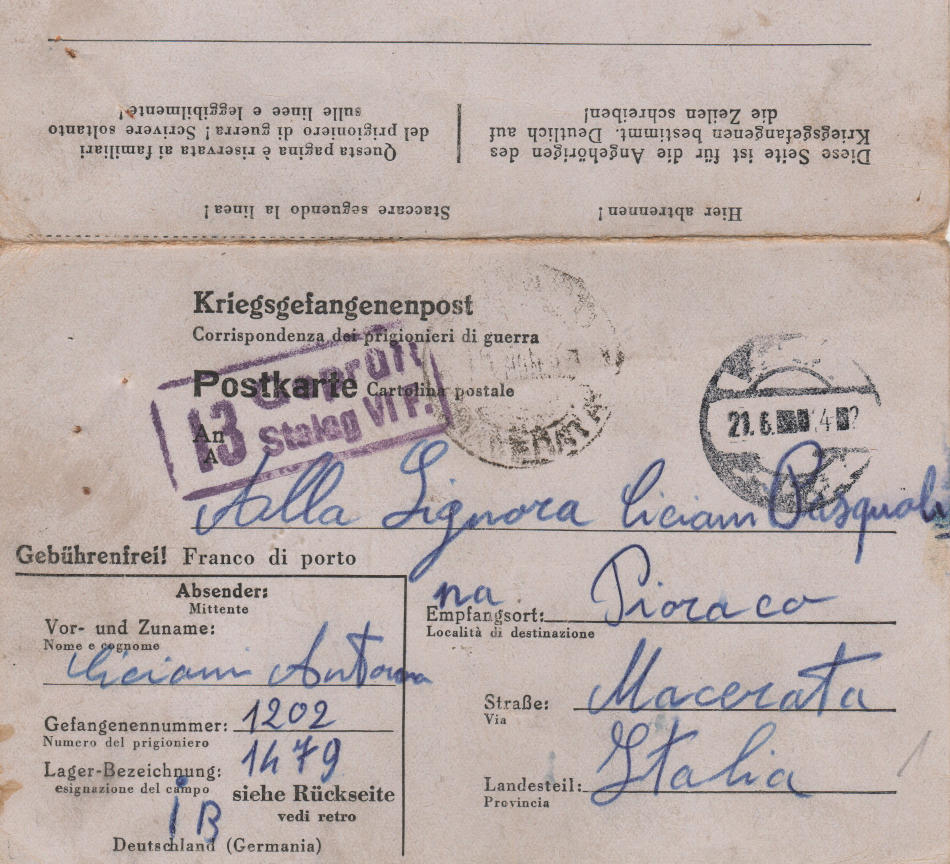 Diese Seite ist für die Angehörigen des
Kriegsgefangenen bestimmt. Deutlich auf
die Zeilen schreiben!
Questa pagina è riservata ai familiari
del prigioniero di guerra! Scrivere soltanto
sulle linee e leggibilmente!
Hier abtrennen!
Staccare seguendo la linea!
Kriegsgefangenenpost
Corrispondenza dei prigionieri di guerra
Postkarte Cartolina postale
13 Geprüft
Stalag VI F.
MACERATA
21.6.
An
A
Alla Signora Ciciani Pasquali
na
Gebührenfrei! Franco di porto
Absender:
Mittente
Vor- und Zuname:
Nome e cognome
Ciciani Antonio
Gefangenennummer: 1202
Numero del prigioniero
1479
Lager-Bezeichnung:
esignazione del campo
siehe Rückseite
vedi retro
IB
Deutschland (Germania)
Empfangsort: Pioraco
Località di destinazione
Straße: Macerata
Via
Landesteil: Italia
Provincia